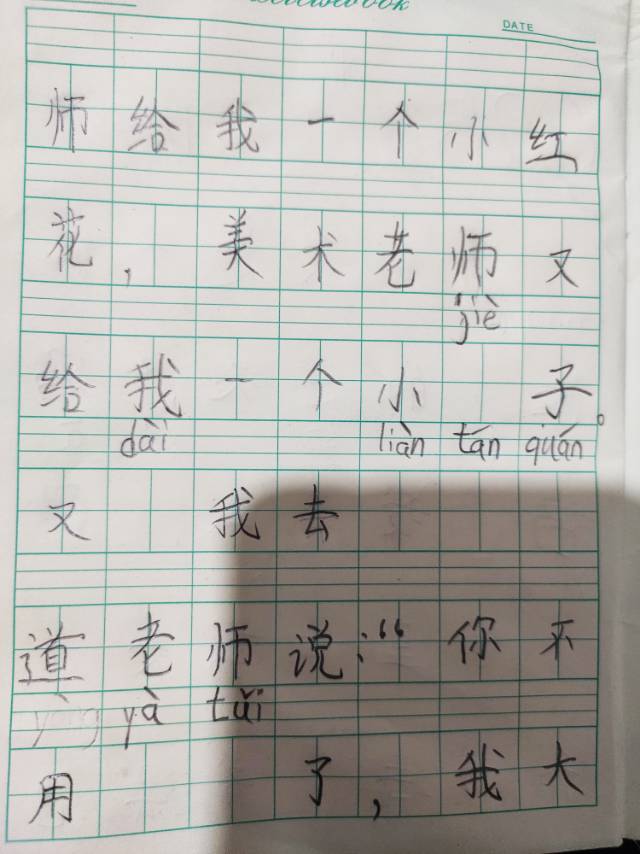 DATE
师给我一个小红
花，美术老师又
jiè
给我一个小 子。
dài liàn tán quán
又 我去
道老师说：“你不
yòng yà tuǐ
用 了，我大